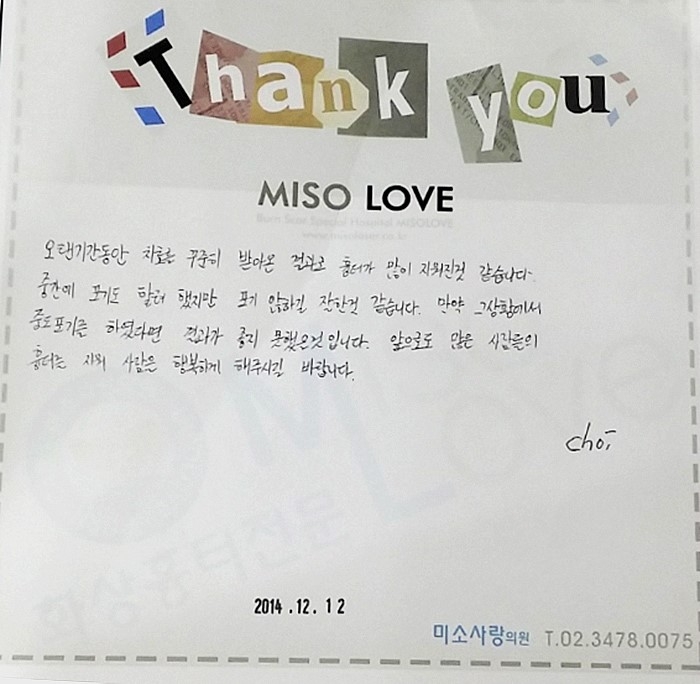 Thank you
MISO LOVE
Burn Scar Special Hospital MISOLOVE
오랜기간동안 치료를 꾸준히 받아온 결과로 흉터가 많이 지워진것 같습니다.
중간에 포기도 할려 했지만 포기 않하길 잘한것 같습니다. 만약 그상황에서
중도포기를 하였다면 결과가 좋지 못했을것입니다. 앞으로도 많은 사람들의
흉터를 지워 사람은 행복하게 해주시길 바랍니다.
Choi
화상흉터전문
2014.12.12
미소사랑의원 T.02.3478.0075